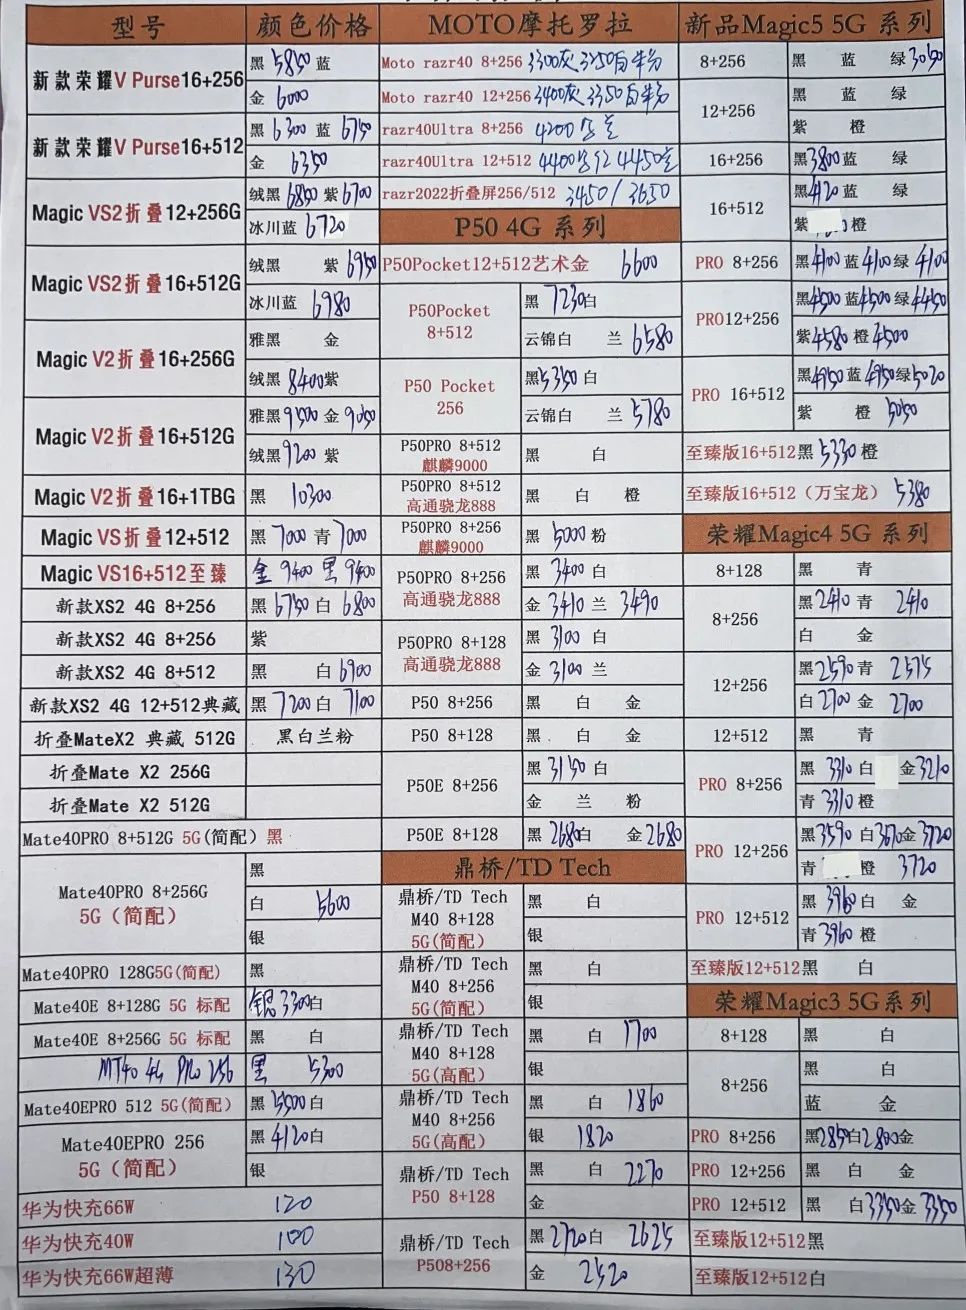 型号 颜色价格
新款荣耀V Purse16+256 黑 5850 蓝
金 6000
新款荣耀V Purse16+512 黑 6300 蓝 6750
金 6350
Magic VS2折叠12+256G 绒黑 6850 紫 6700
冰川蓝 6720
Magic VS2折叠16+512G 绒黑 紫 6950
冰川蓝 6980
Magic V2折叠16+256G 雅黑 金
绒黑 8400 紫
Magic V2折叠16+512G 雅黑 9500 金 9050
绒黑 9200 紫
Magic V2折叠16+1TBG 黑 10300
Magic VS折叠12+512 黑 7000 青 7000
Magic VS16+512至臻 金 9400 黑 9400
新款XS2 4G 8+256 黑 6750 白 6800
新款XS2 4G 8+256 紫
新款XS2 4G 8+512 黑 白 6900
新款XS2 4G 12+512典藏 黑 7200 白 7100
折叠MateX2 典藏 512G 黑白兰粉
折叠Mate X2 256G
折叠Mate X2 512G
Mate40PRO 8+512G 5G(简配) 黑
Mate40PRO 8+256G 5G(简配) 黑
白 5600
银
Mate40PRO 128G5G(简配) 黑
Mate40E 8+128G 5G 标配 银 3300 白
Mate40E 8+256G 5G 标配 黑 白
MT40 4G PRO 256 黑 5300
Mate40EPRO 512 5G(简配) 黑 5500 白
Mate40EPRO 256 5G(简配) 黑 4120 白
银
华为快充66W 120
华为快充40W 100
华为快充66W超薄 130
MOTO摩托罗拉
Moto razr40 8+256 3300灰 3250白
Moto razr40 12+256 3400灰 3350白
razr40Ultra 8+256 4200
razr40Ultra 12+512 4400 4450
razr2022折叠屏256/512 3450/3650
P50 4G 系列
P50Pocket12+512艺术金 6600
P50Pocket 8+512 黑 7230 白
云锦白 兰 6580
P50 Pocket 256 黑 5350 白
云锦白 兰 5780
P50PRO 8+512 麒麟9000 黑 白
P50PRO 8+512 高通骁龙888 黑 白 橙
P50PRO 8+256 麒麟9000 黑 5000 粉
P50PRO 8+256 高通骁龙888 黑 3400 白
金 3410 兰 3490
P50PRO 8+128 高通骁龙888 黑 3100 白
金 3100 兰
P50 8+256 黑 白 金
P50 8+128 黑 白 金
P50E 8+256 黑 3150 白
金 兰 粉
P50E 8+128 黑 2680 白 金 2680
鼎桥/TD Tech
鼎桥/TD Tech M40 8+128 5G(简配) 黑 白
银
鼎桥/TD Tech M40 8+256 5G(简配) 黑 白
银
鼎桥/TD Tech M40 8+128 5G(高配) 黑 白 1700
银
鼎桥/TD Tech M40 8+256 5G(高配) 黑 白 1860
银 1820
鼎桥/TD Tech P50 8+128 黑 白 2270
金
鼎桥/TD Tech P508+256 黑 2720 白 2625
金 2520
新品Magic5 5G 系列
8+256 黑 蓝 绿 3050
12+256 黑 蓝 绿
紫 橙
16+256 黑 3800 蓝 绿
16+512 黑 4120 蓝 绿
紫 橙
PRO 8+256 黑 4100 蓝 4100 绿 4100
PRO12+256 黑 4500 蓝 4500 绿 4450
紫 4580 橙 4500
PRO 16+512 黑 4950 蓝 4950 绿 5020
紫 橙 5050
至臻版16+512黑 5330 橙
至臻版16+512(万宝龙) 5380
荣耀Magic4 5G 系列
8+128 黑 青
8+256 黑 2410 青 2410
白 金
12+256 黑 2590 青 2575
白 2700 金 2700
12+512 黑 青
PRO 8+256 黑 3310 白 金 3210
青 3310 橙
PRO 12+256 黑 3590 白 3670 金 3720
青 橙 3720
PRO 12+512 黑 3960 白 金
青 3960 橙
至臻版12+512黑 白
荣耀Magic3 5G系列
8+128 黑 白
8+256 黑 白
蓝 金
PRO 8+256 黑 2850 白 2800 金
PRO 12+256 黑 白 金
PRO 12+512 黑 白 3350 金 3350
至臻版12+512黑
至臻版12+512白